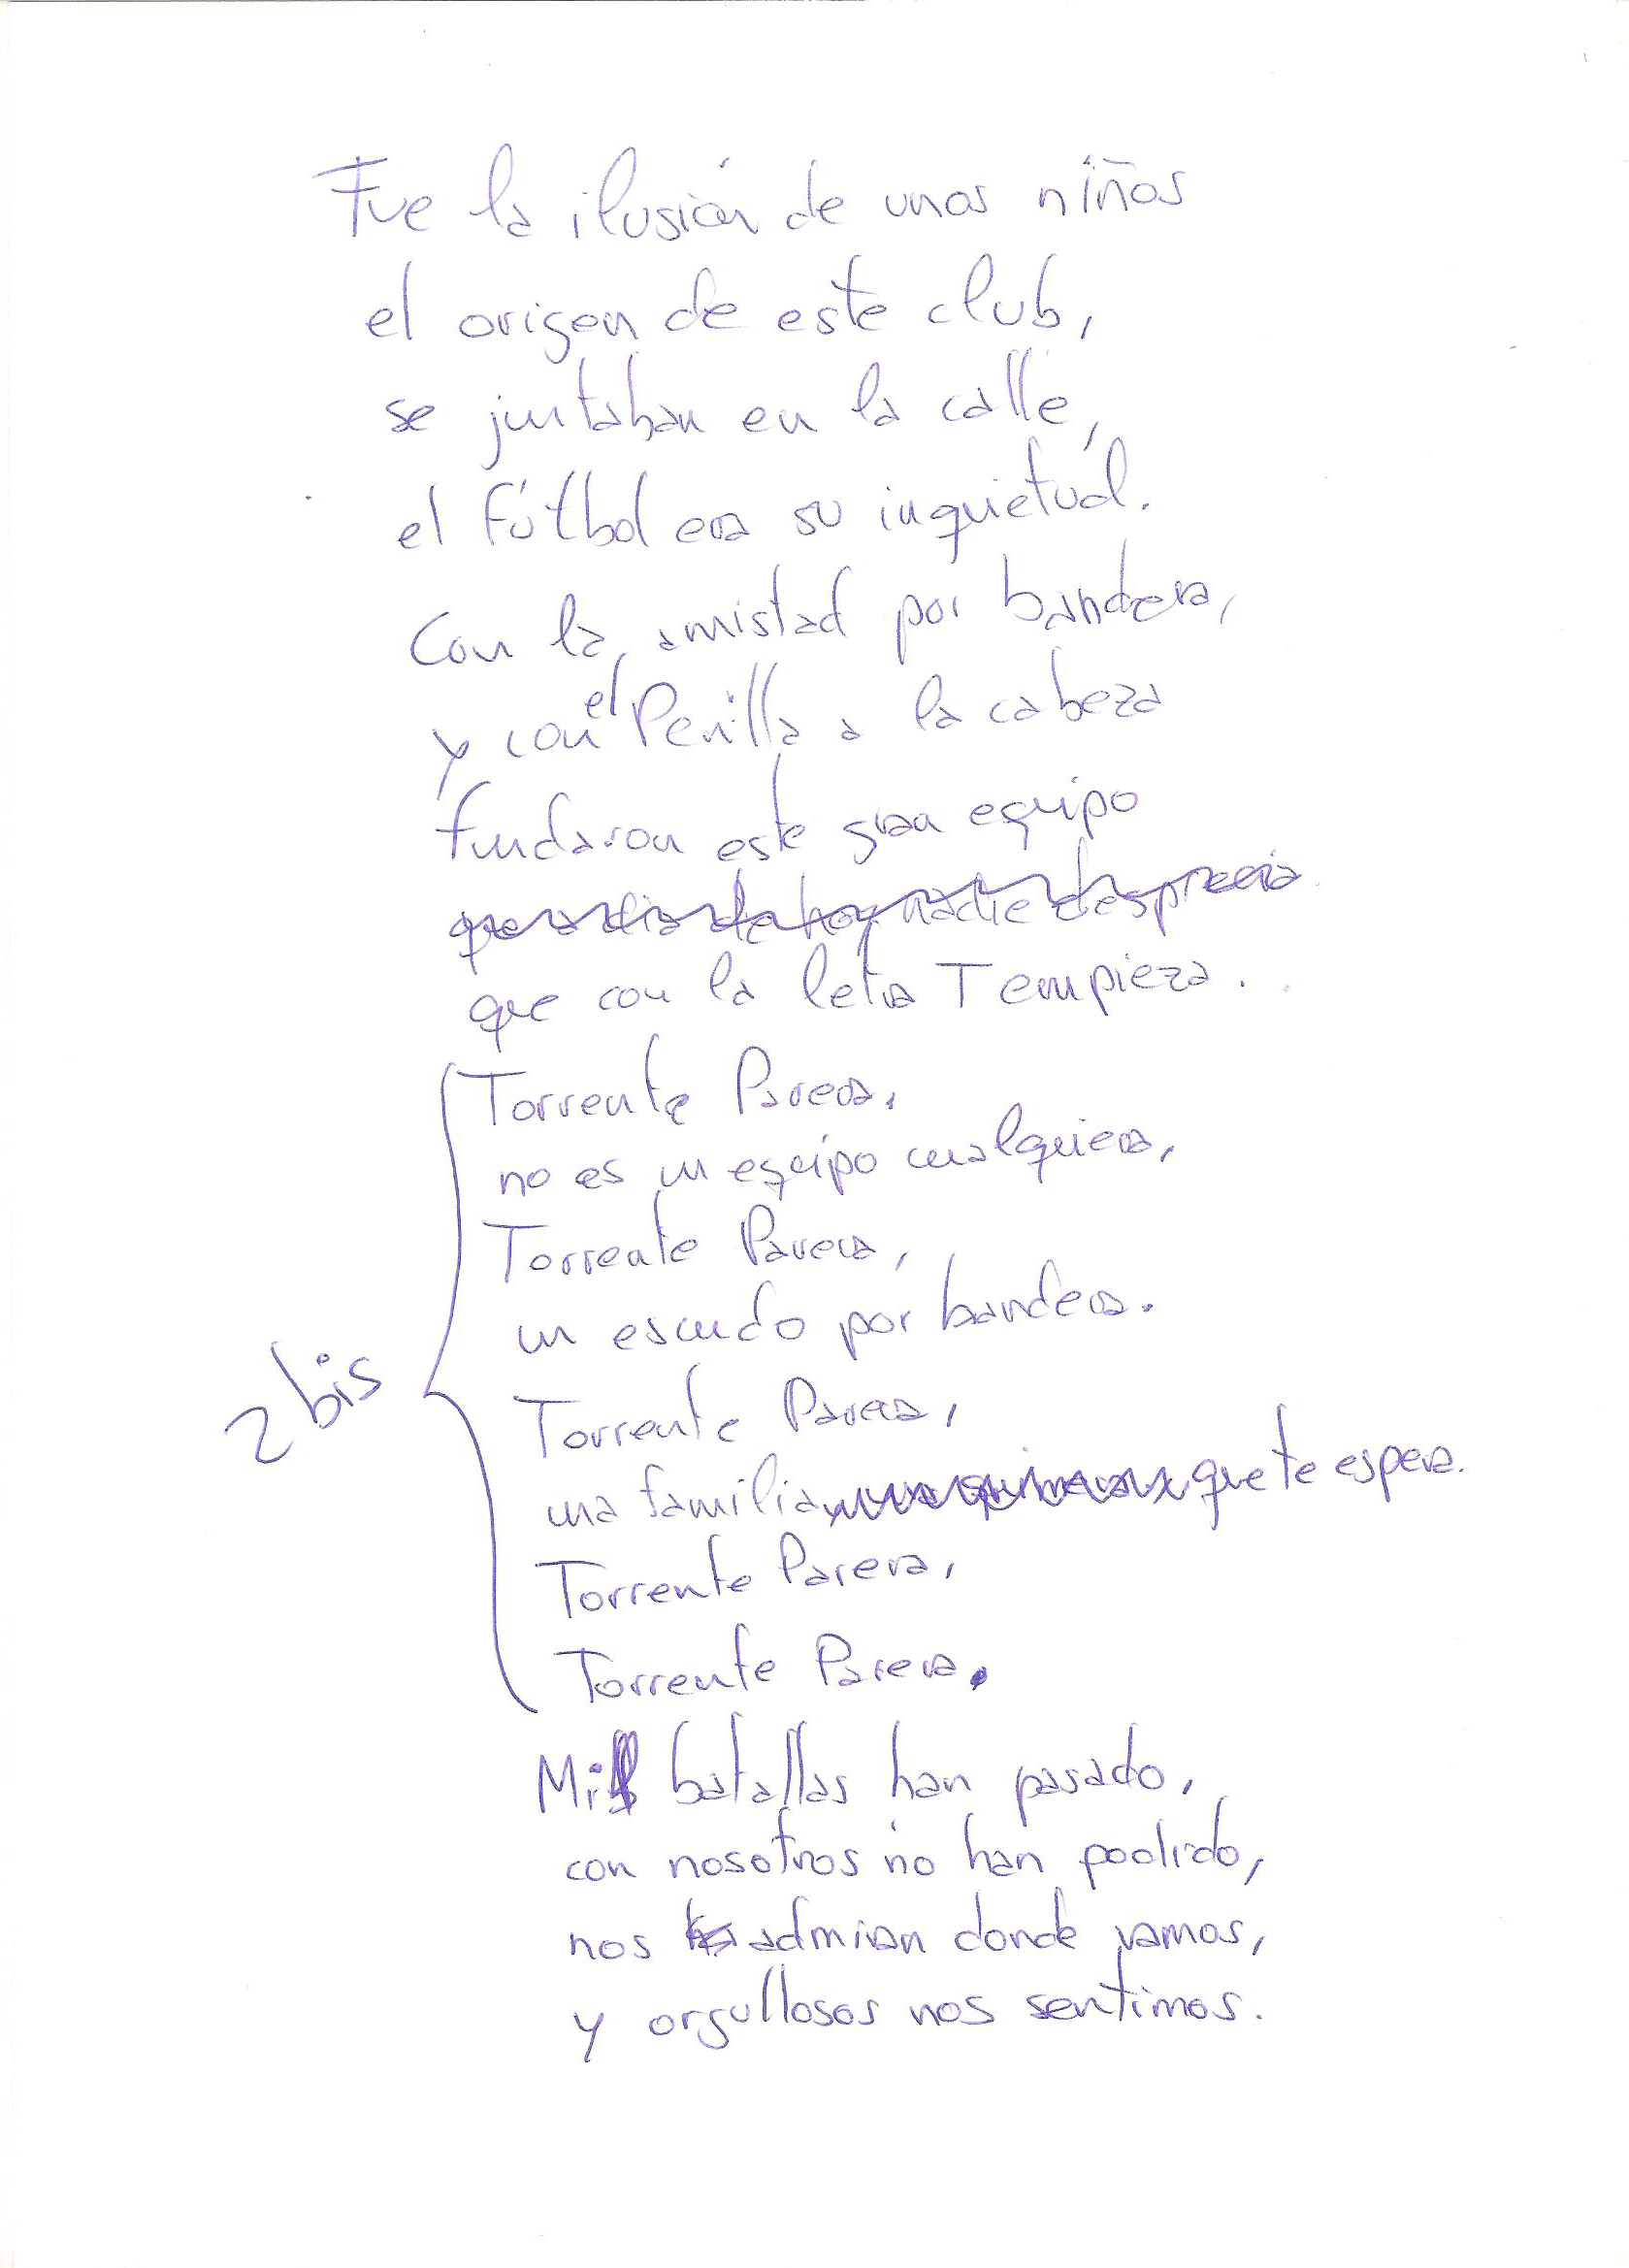 Fue la ilusión de unos niños
el origen de este club,
se juntaban en la calle,
el fútbol era su inquietud.
Con la amistad por bandera,
y con el Perilla a la cabeza
fundaron este gran equipo
que a dia de hoy nadie desprecia
que con la letra T empieza.
Torrente Parera,
no es un equipo cualquiera,
Torrente Parera,
un escudo por bandera.
2 bis
Torrente Parera,
una familia que te espera.
Torrente Parera,
Torrente Parera.
Mil batallas han pasado,
con nosotros no han podido,
nos admiran donde vamos,
y orgullosos nos sentimos.